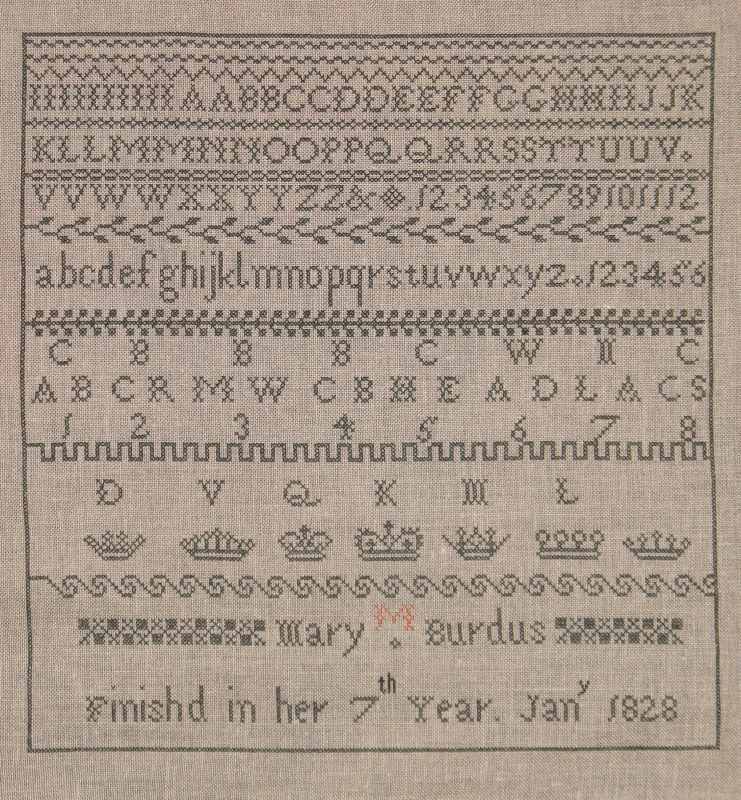 AABBCCDDEEFFGGHHIIJJK
KLLMMNNOOPPQQRRSSTTUUV.
VVWWXXYYZZ& 123456789101112
abcdefghijklmnopqrstuvwxyz.123456
C B B B C W C
A B C R M W C B H E A D L A C S
1 2 3 4 5 6 7 8
D V Q K M L
Mary M. Burdus
Finishd in her 7th Year. Jany 1828